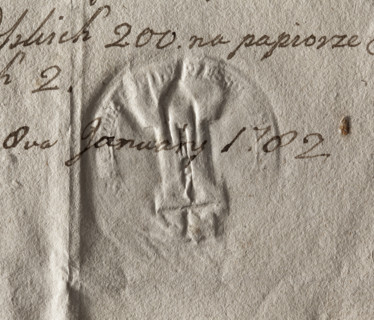 200. na papiorze
h 2.
8va January 1782